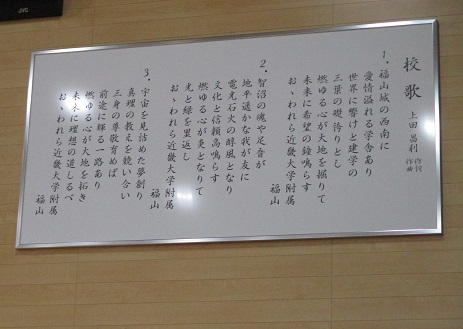 JVC
校歌
上田昌利 作詞 作曲
1、福山城の西南に
愛情溢れる学舎あり
世界に響けと建学の
三葉の礎誇りとし
燃ゆる心が大地を掘りて
未来に希望の鐘鳴らす
おゝわれら近畿大学附属
福山
2、智沼の魂や足音が
地平遥かな我が友に
電光石火の醇風となり
文化と信頼高鳴らす
燃ゆる心が炎となりて
光と緑を里返し
おゝわれら近畿大学附属
福山
3、宇宙を見詰めた夢創り
真理の教えを競い合い
三身の尊敬育めば
前途に輝る一路あり
燃ゆる心が大地を拓き
未来に理想の道しるべ
おゝわれら近畿大学附属
福山